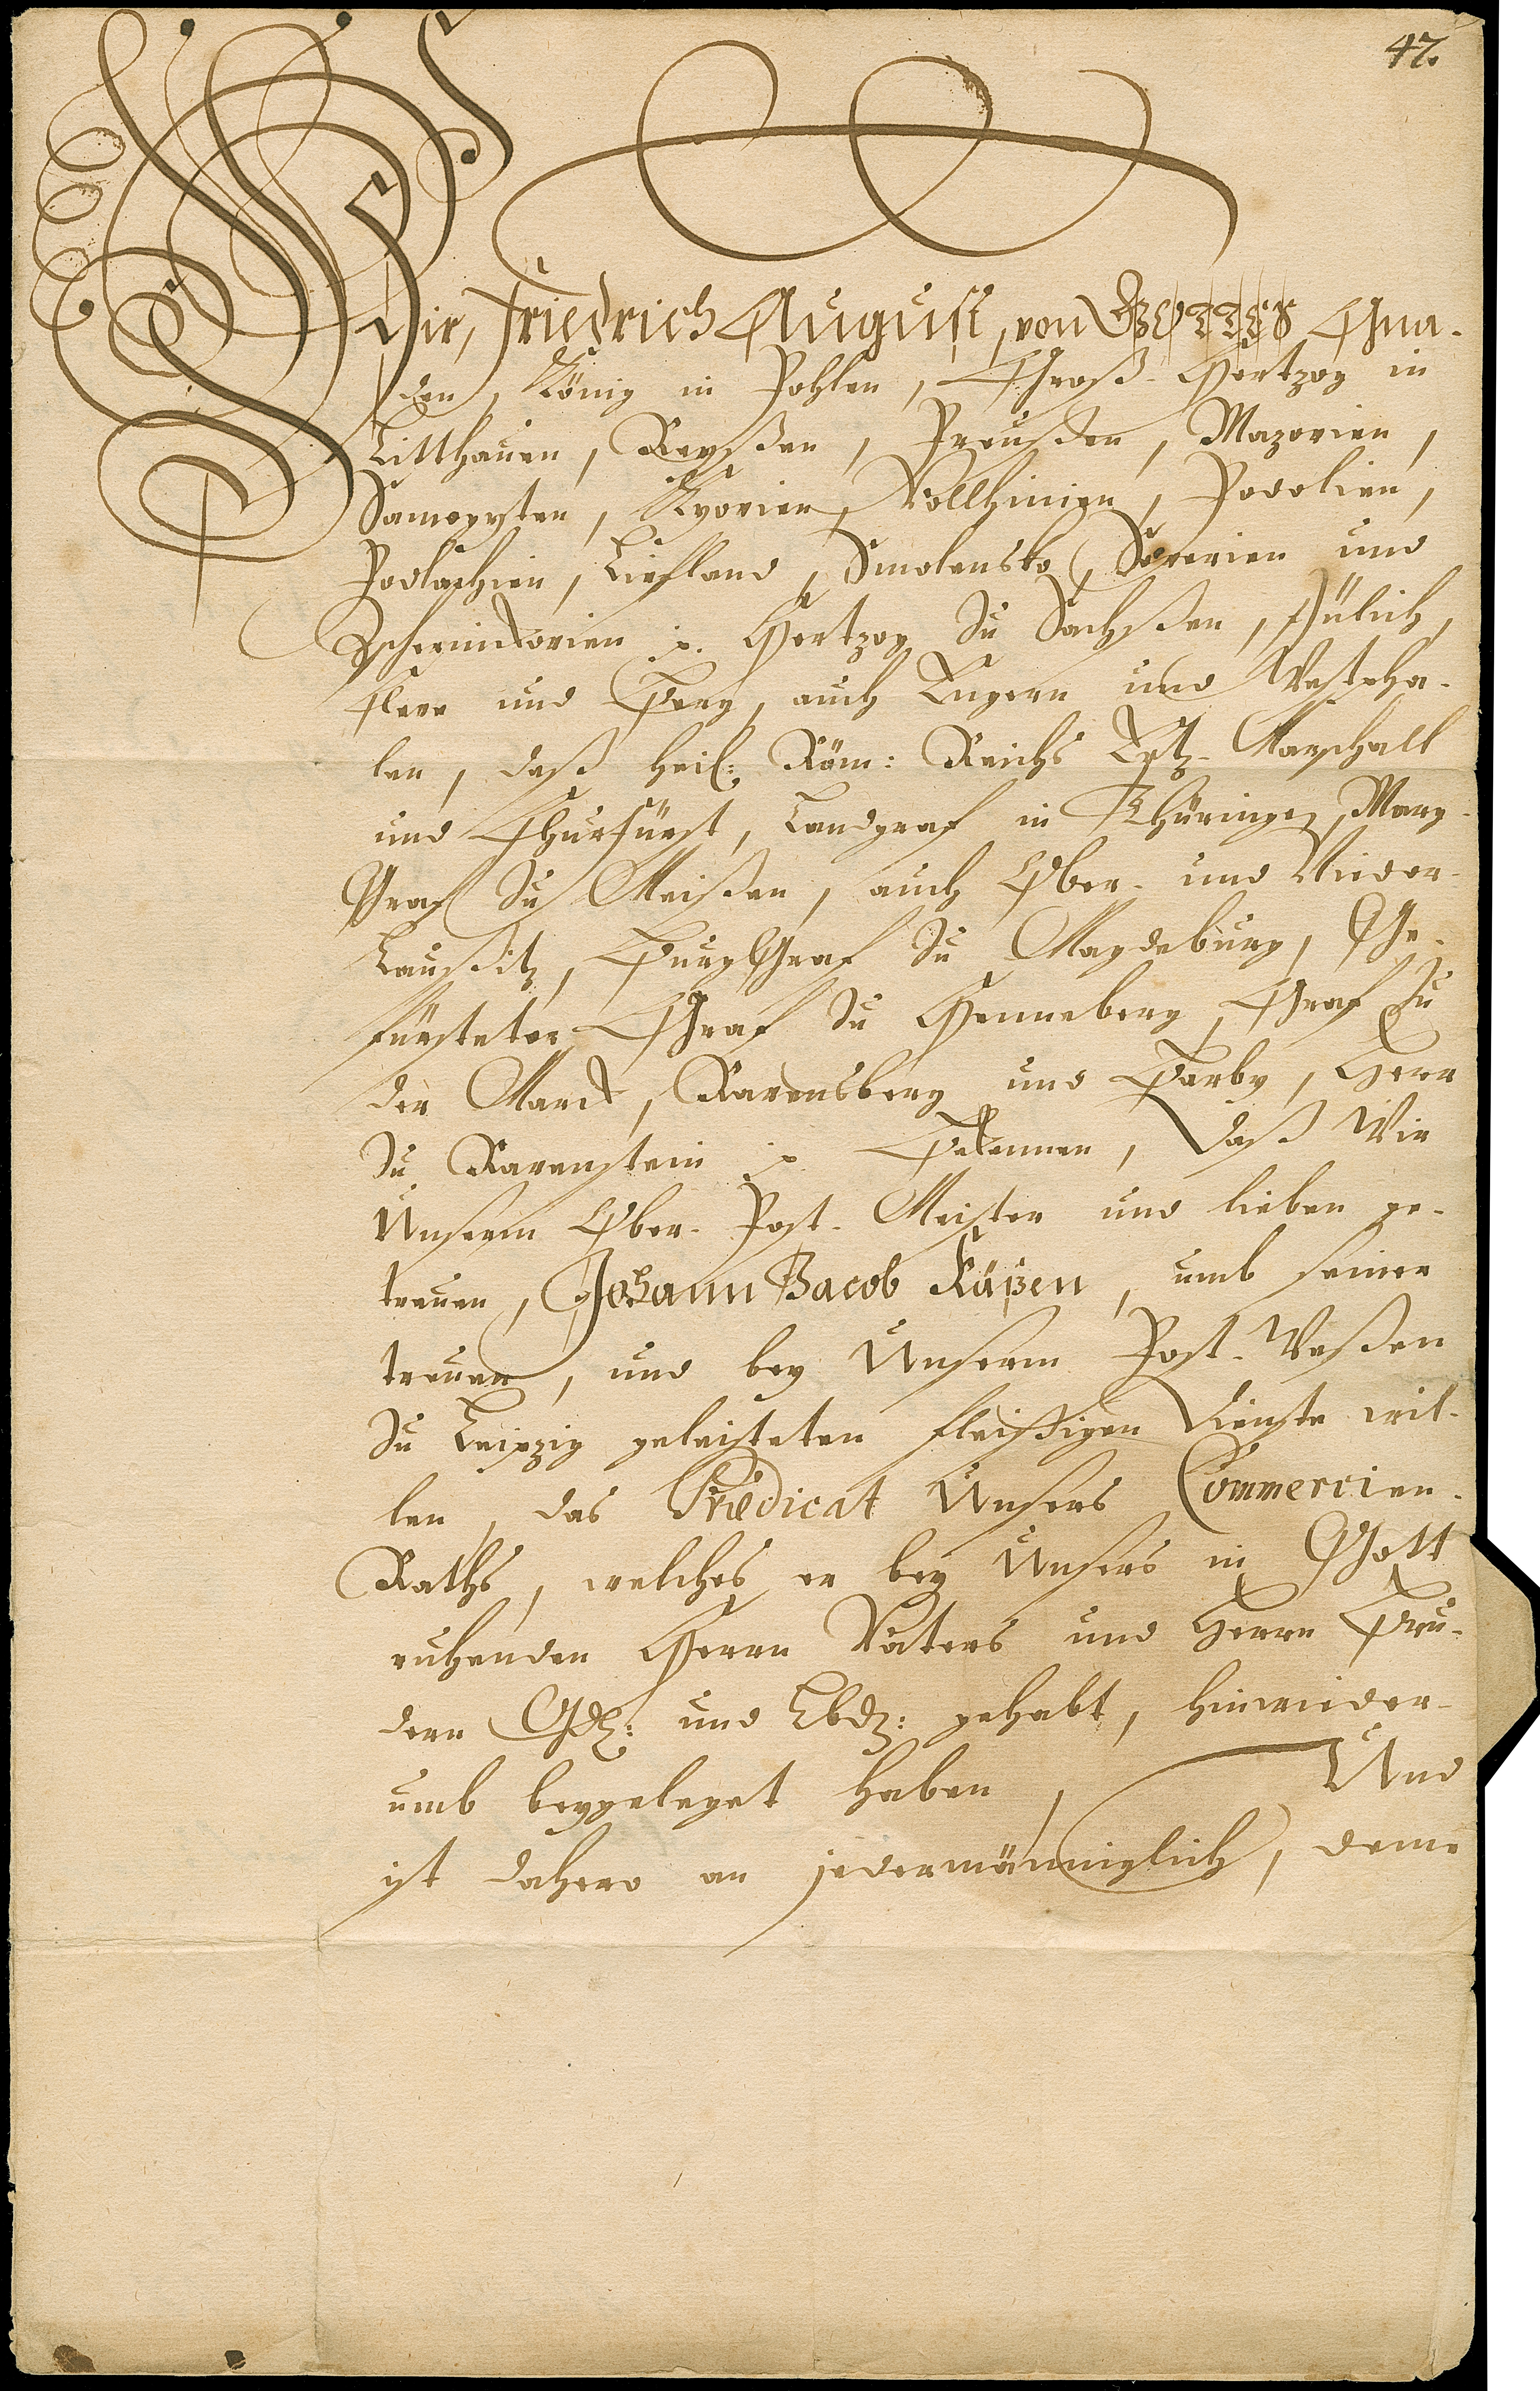 47.
Wir, Friedrich August, von GOTTES Gna-
den, König in Pohlen, Groß-Hertzog in
Litthauen, Reyßen, Preußen, Mazovien,
Samogyten, Kyovien, Vollhinien, Podolien,
Podlachien, Liefland, Smolensko, Severien und
Zschernicovien p. Hertzog zu Sachßen, Jülich,
Cleve und Berg, auch Engern und Westpha-
len, deß Heil: Röm: Reichs Ertz-Marschall
und Churfürst, Landgraf in Thüringen, Marg-
Graf zu Meißen, auch Ober- und Nieder-
Laußitz, BurgGraf zu Magdeburg, Ge-
fürsteter Graf zu Henneberg, Graf zu
der Marck, Ravensberg und Barby, Herr
zu Ravenstein p. Bekennen, daß Wir
Unserm Ober-Post-Meister und lieben ge-
treuen, Johann Jacob Käßen, umb seiner
treuen, und bey Unserm Post-Weßen
zu Leipzig geleisteten fleißigen Dienste wil-
len, das Prædicat Unsers Commercien-
Raths, welches er bey Unsers in Gott
ruhenden Herrn Vaters und Herrn Bru-
dern Gdl: und Lbd: gehabt, hinwieder-
umb beygeleget haben, Und
ist dahero an jedermänniglich, deme